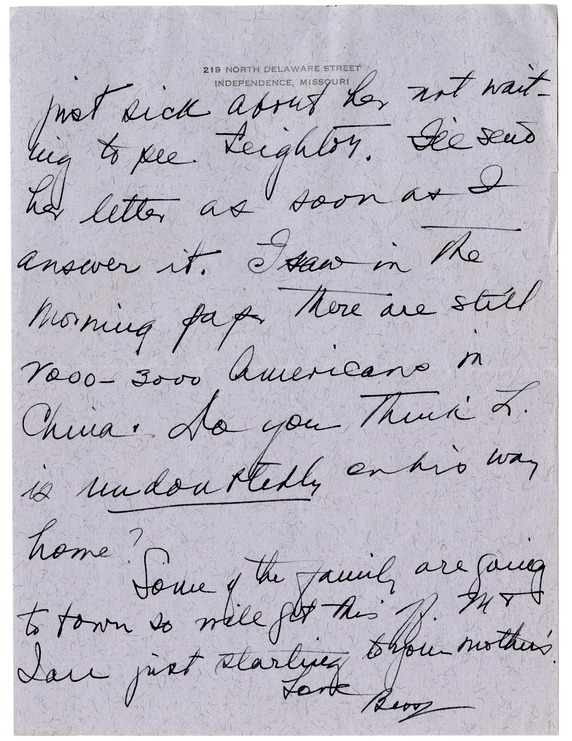 219 NORTH DELAWARE STREET
INDEPENDENCE, MISSOURI
just sick about her not wait-
ing to see Leighton. I'll send
her letter as soon as I
answer it. I saw in the
morning paper there are still
2000-3000 Americans in
China. Do you think L.
is undoubtedly on his way
home?
Some of the family are going
to town so will get this off. M &
I are just starting to your mother's.
Love
Bess